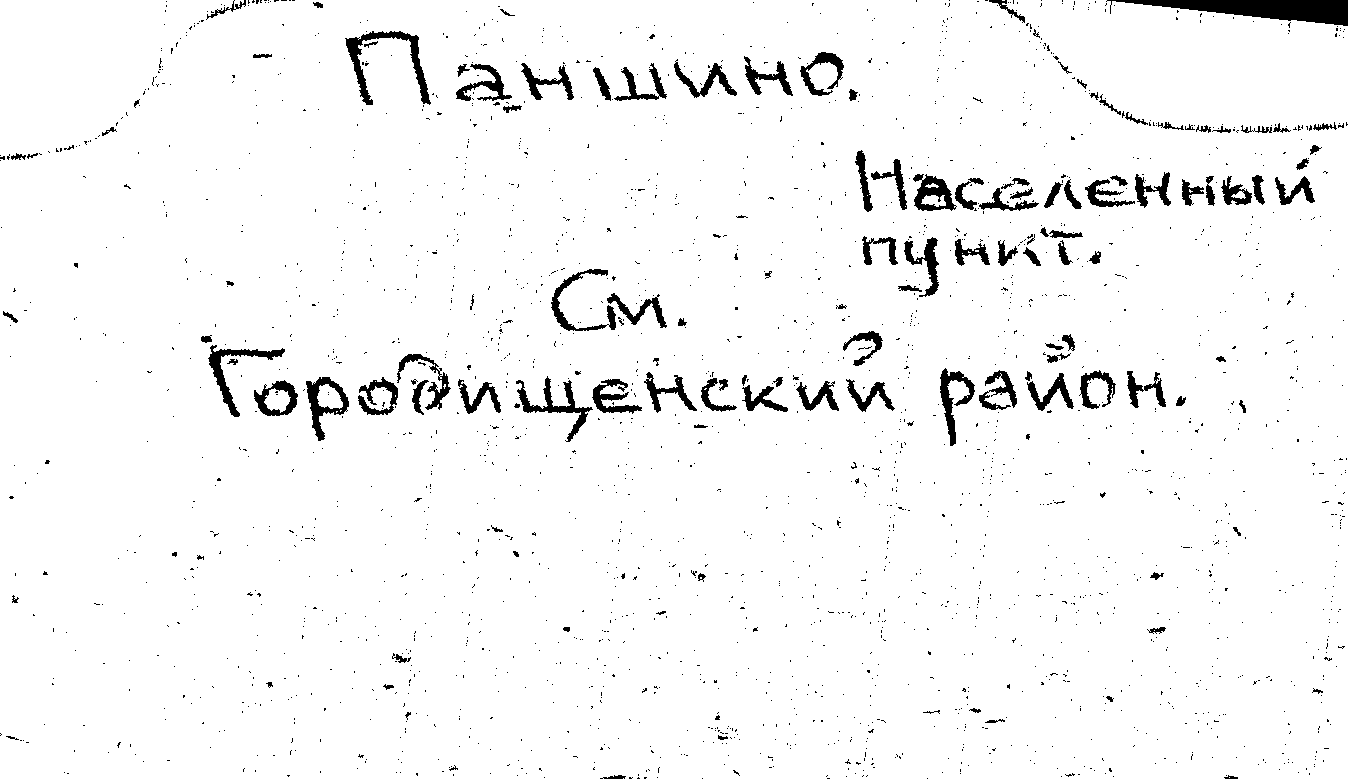 Паншино.
Населенный
пункт.
См.
Городищенский район.